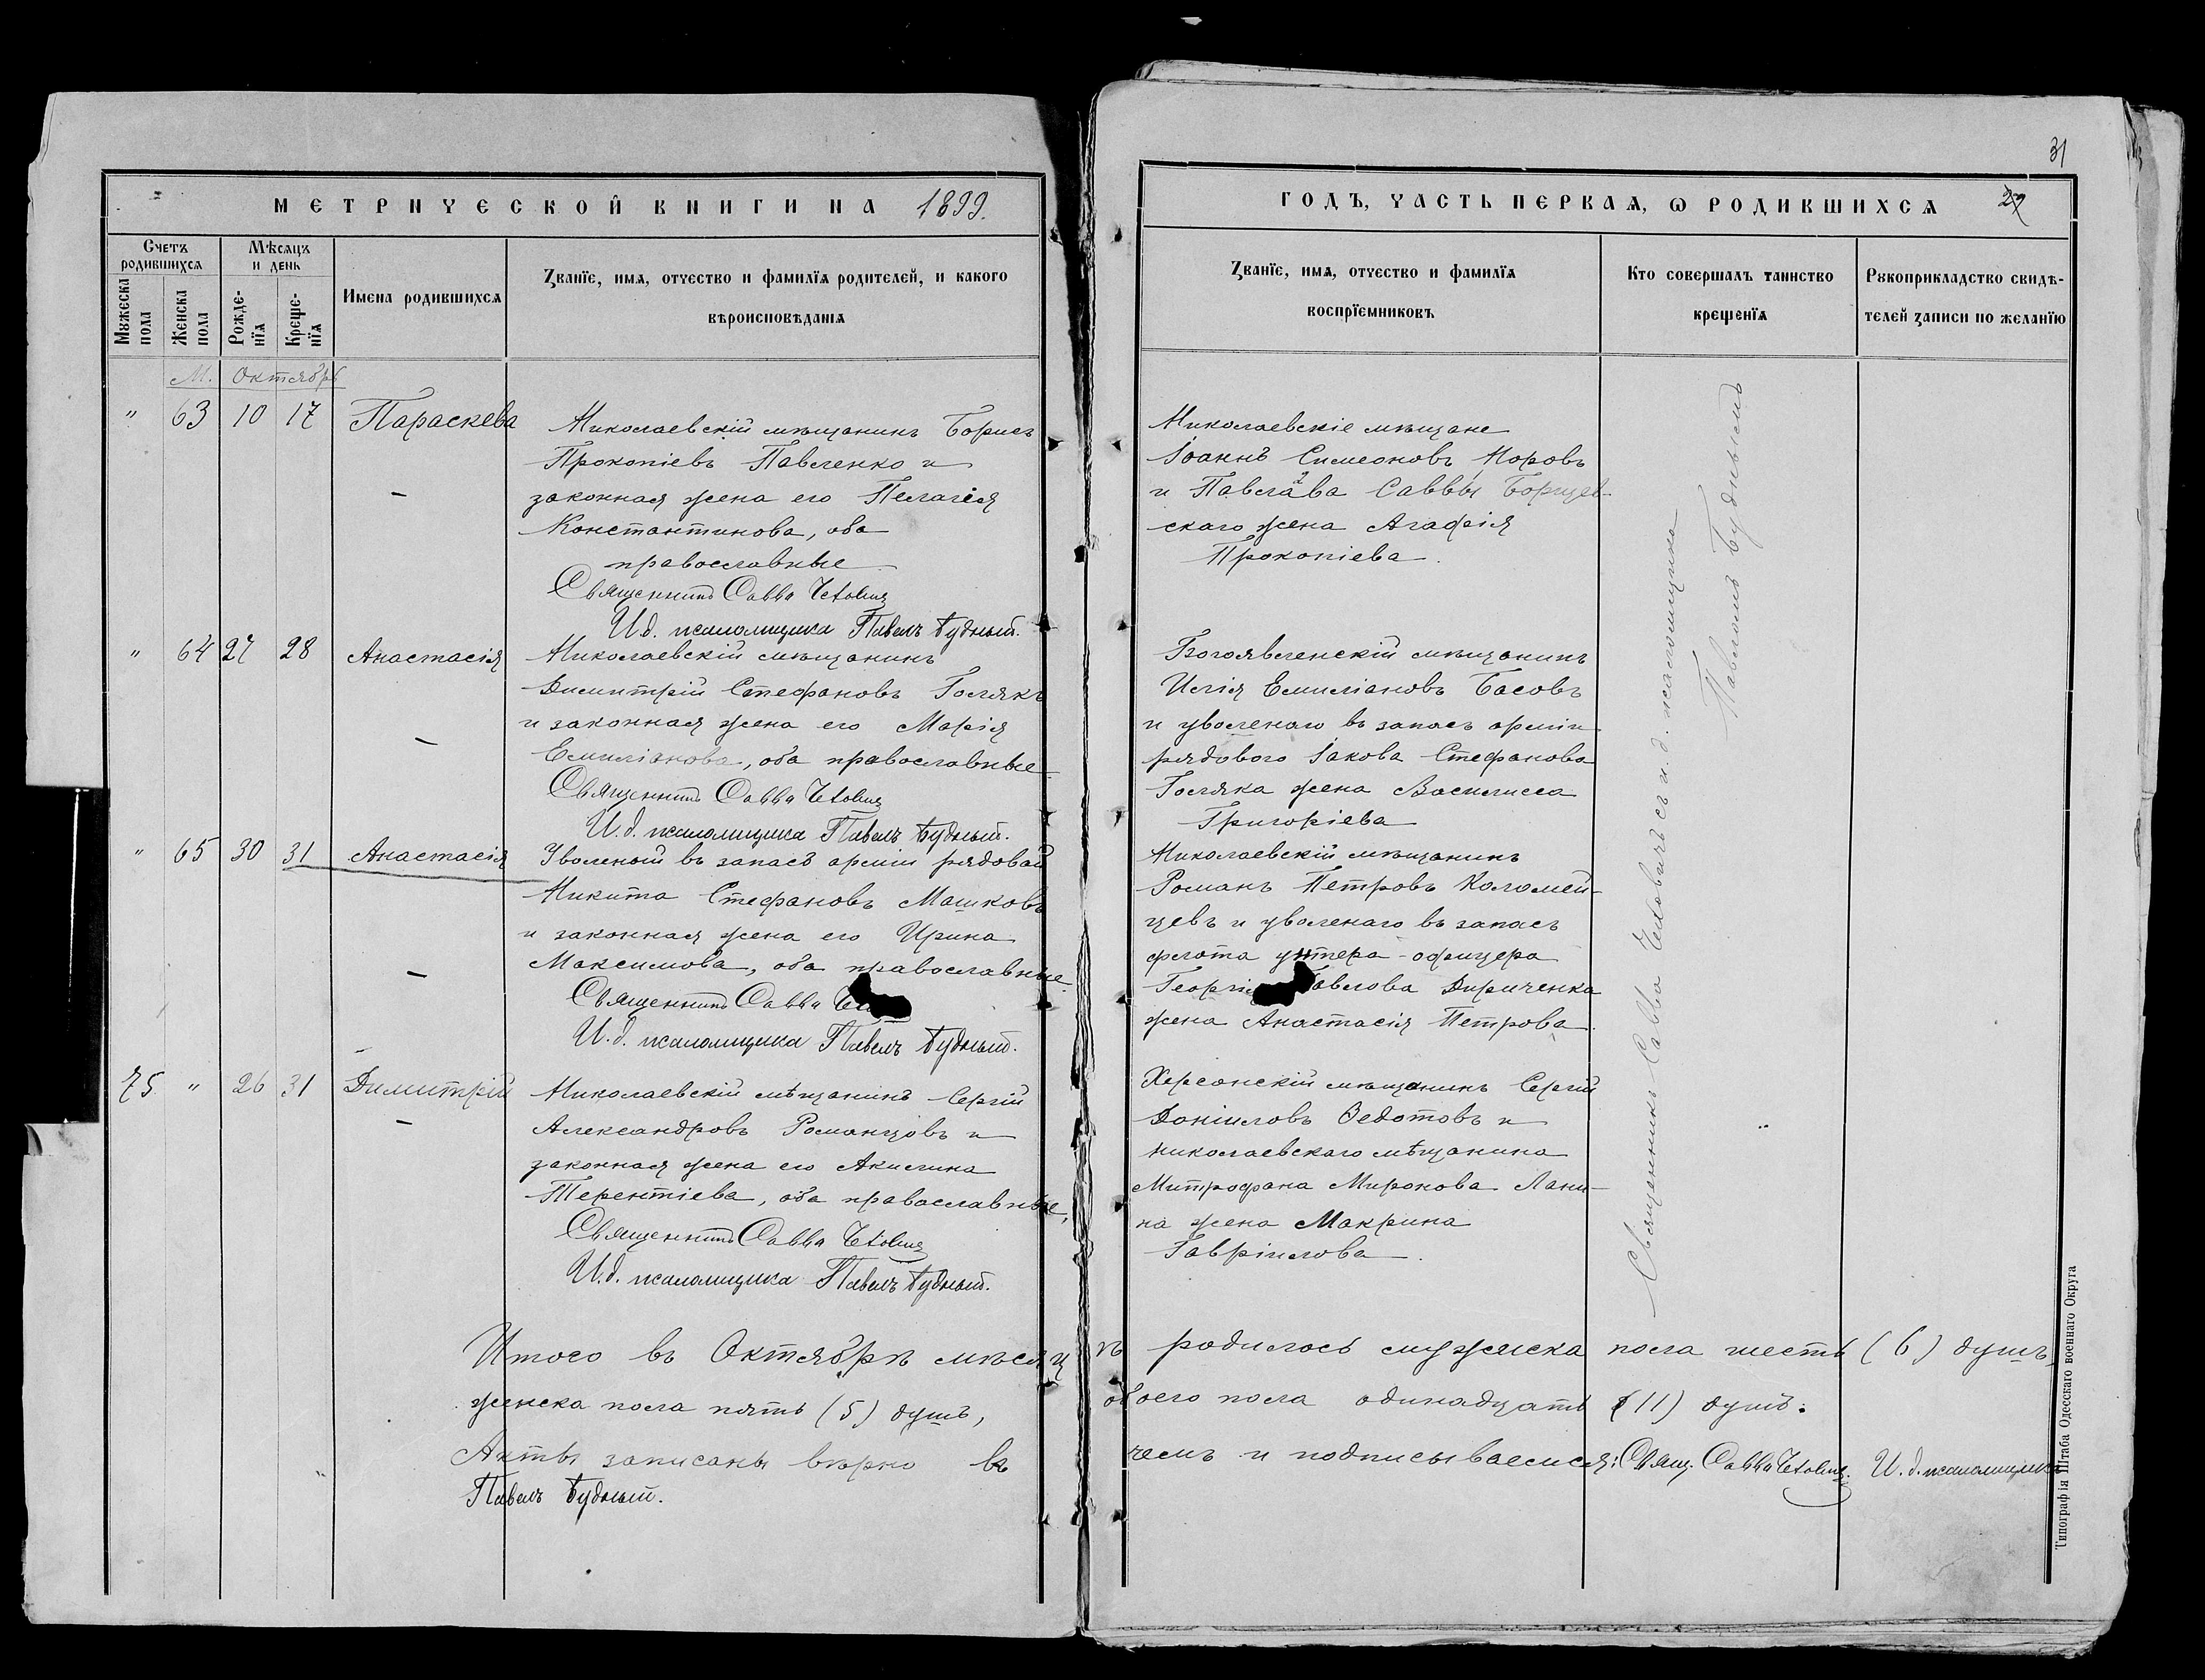 МЕТРИЧЕСКОЙ КНИГИ НА 1899.
Счетъ родившихся
Мѣсяцъ и день
Имена родившихся
Званїе, имя, отчество и фамилїя родителей, и какого
вѣроисповѣданїя
Мꙋжеска пола
Женска пола
Рожде-нїя
Креще-нїя
М. Октябрь
" 63 10 17 Параскева
Николаевскій мѣщанинъ Борисъ
Прокопіевъ Павленко и
законная жена его Пелагія
Константинова, оба
православные
Священникъ Савва
И.д. псаломщика Павелъ Будный.
" 64 27 28 Анастасія
Николаевскій мѣщанинъ
Димитрій Стефановъ Голякъ
и законная жена его Марія
Емиліанова, оба православные
Священникъ Савва
И.д. псаломщика Павелъ Будный.
" 65 30 31 Анастасія
Уволеный въ запасъ арміи рядовой
Никита Стефановъ Машковъ
и законная жена его Ирина
Максимова, оба православные.
Священникъ Савва
И.д. псаломщика Павелъ Будный.
75 " 26 31 Димитрій
Николаевскій мѣщанинъ Сергій
Александровъ Романцовъ и
законная жена его Акилина
Терентіева, оба православные,
Священникъ Савва
И.д. псаломщика Павелъ Будный.
31
ГОДЪ, ЧАСТЬ ПЕРВАЯ, Ѡ РОДИВШИХСЯ 29
Званїе, имя, отчество и фамилїя
воспрїемниковъ
Кто совершалъ таинство
крещенїя
Рꙋкоприкладство свидѣ-
телей записи по желанїю
Николаевскіе мѣщане
Іоаннъ Симеоновъ Норовъ
и Саввы Борщев-
скаго жена Агафія
Прокопіева.
Богоявленскій мѣщанинъ
Илія Емиліановъ Басовъ
и уволенаго въ запасъ арміи
рядового Іакова Стефанова
Голяка жена Василисса
Григоріева
Николаевскій мѣщанинъ
Романъ Петровъ Коломей-
цевъ и уволенаго въ запасъ
флота унтера-офицера
Павлова Дириченка
жена Анастасія Петрова.
Херсонскій мѣщанинъ Сергій
Даніиловъ Ѳедотовъ и
николаевскаго мѣщанина
Митрофана Миронова Лани-
на жена Макрина
Гавріилова.
Священникъ Савва съ и.д. псаломщика
Павломъ Буднымъ
Итого въ Октябрѣ мѣсяцѣ родилось мужеска пола шесть (6) душъ,
женска пола пять (5) душъ, обоего пола одинадцать (11) душъ.
Акты записаны вѣрно въ чемъ и подписываемся: Свящ. Савва И.д. псаломщика
Павелъ Будный.
Типографія Штаба Одесскаго военнаго Округа